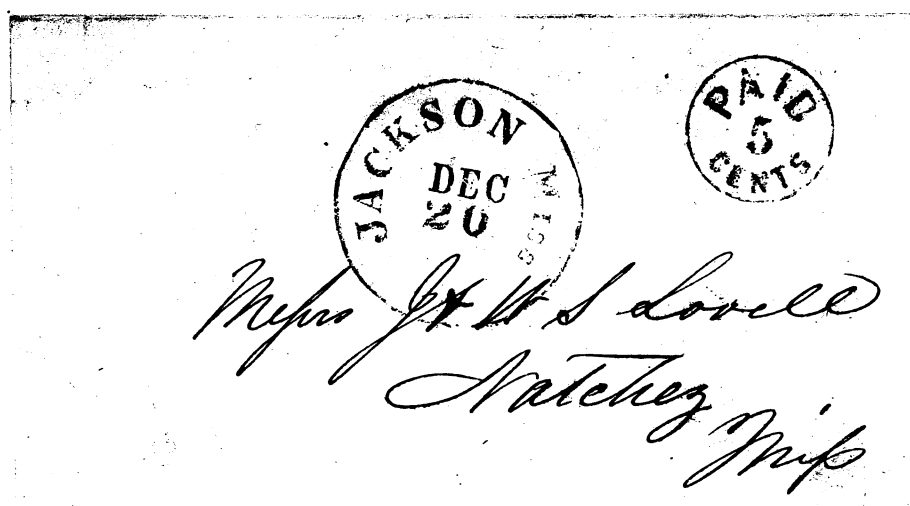 JACKSON MISS
DEC
20
PAID
5
CENTS
Messrs J & W S Lovell
Natchez
Miss